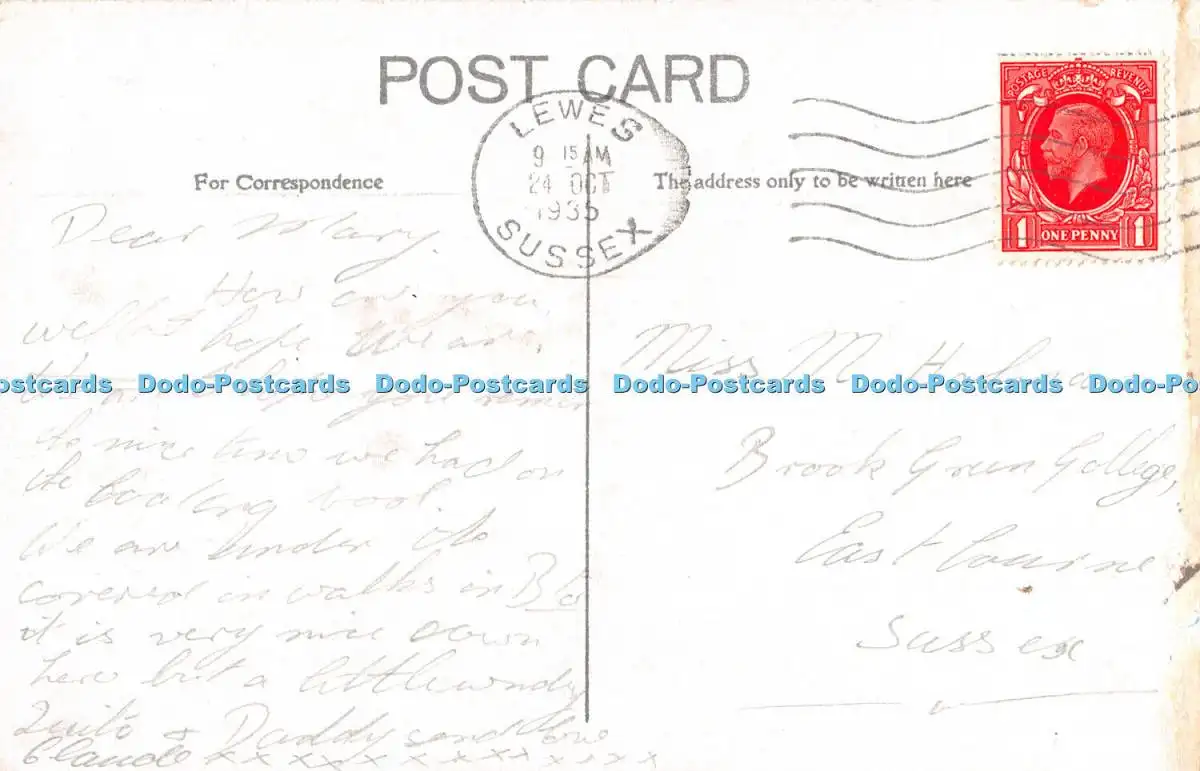 POST CARD
LEWES
9 15 AM
24 OCT
1935
SUSSEX
POSTAGE REVENUE
1 ONE PENNY 1
For Correspondence
The address only to be written here
Dear Mary.
How are you
well hope We are,
Dodo-Postcards Dodo-Postcards Dodo-Postcards Dodo-Postcards Dodo-Postcards
nice time we had on
the
We are under
covered in walks in
it is very nice down
here but a little windy
Daddy send love
Claude x x x x x x x x x x x
Miss M
Brook Green College,
East bourne
Sussex